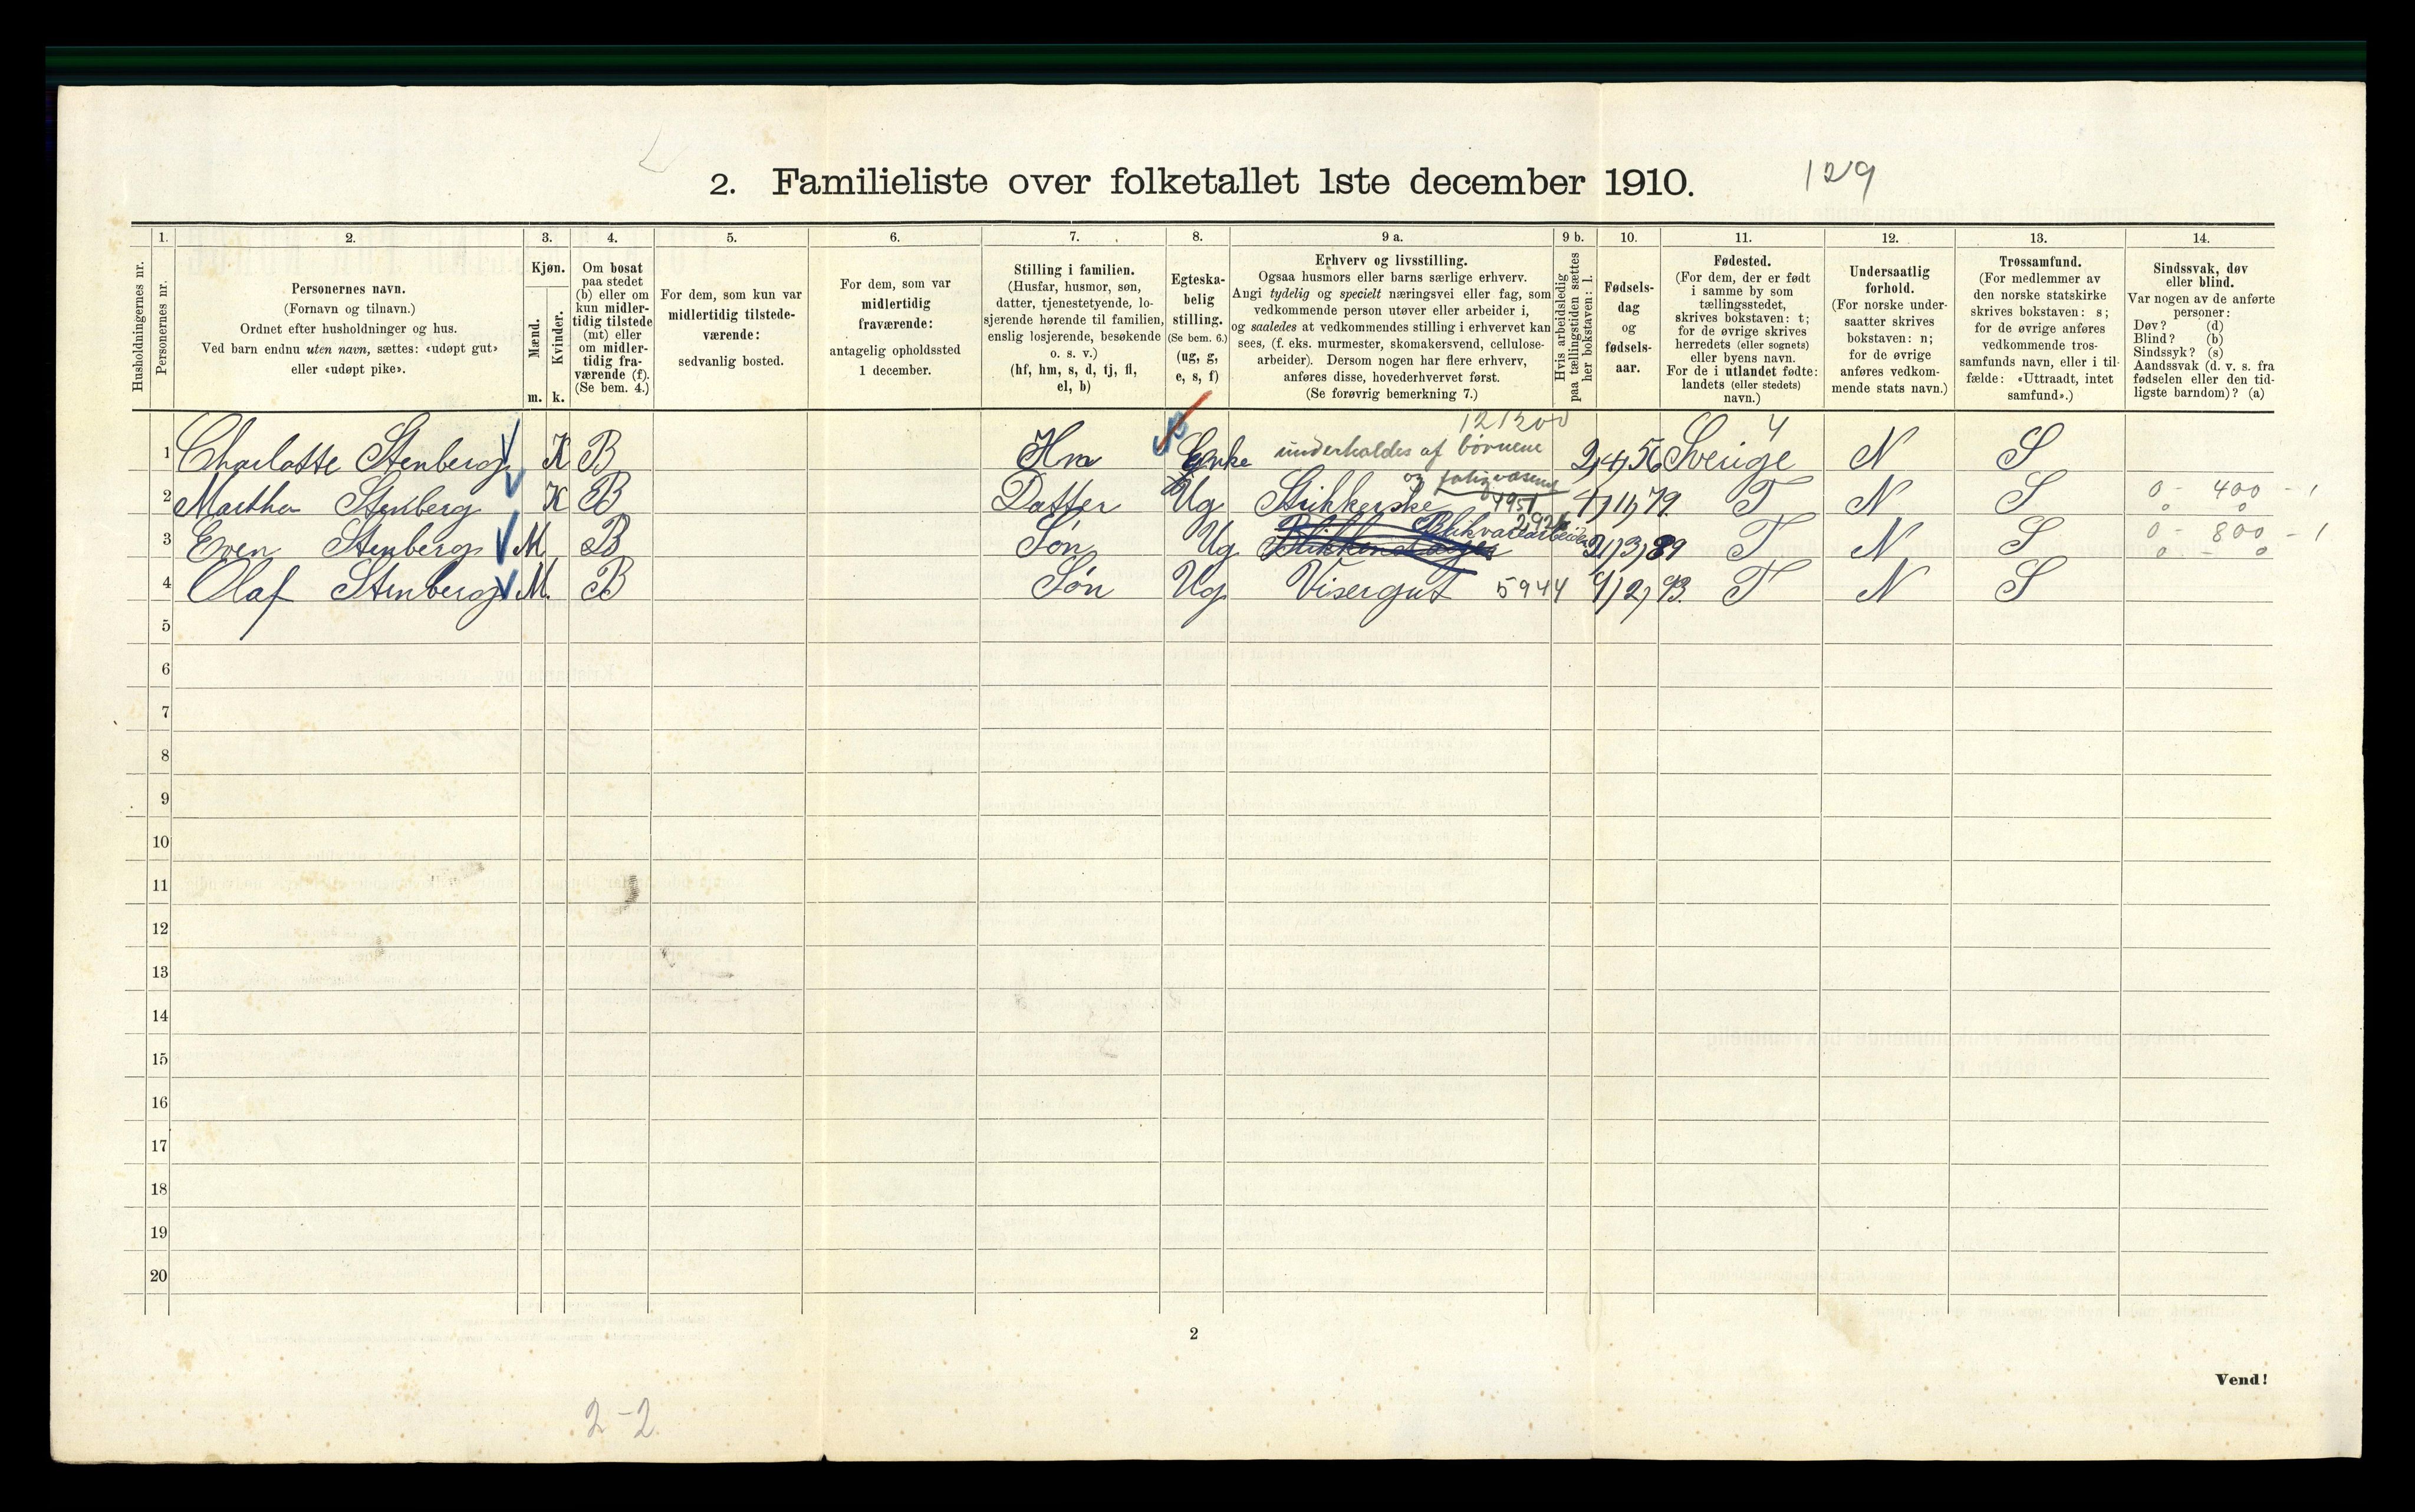 2. Familieliste over folketallet 1ste december 1910. 129
Husholdningernes nr.
1.
Personernes nr.
2.
Personernes navn.
(Fornavn og tilnavn.)
Ordnet efter husholdninger og hus.
Ved barn endnu uten navn, sættes: «udøpt gut»
eller «udøpt pike».
3.
Kjøn.
Mænd.
Kvinder.
m. k.
4.
Om bosat
paa stedet
(b) eller om
kun midler-
tidig tilstede
(mt) eller
om midler-
tidig fra-
værende (f).
(Se bem. 4.)
5.
For dem, som kun var
midlertidig tilstede-
værende:
sedvanlig bosted.
6.
For dem, som var
midlertidig
fraværende:
antagelig opholdssted
1 december.
7.
Stilling i familien.
(Husfar, husmor, søn,
datter, tjenestetyende, lo-
sjerende hørende til familien,
enslig losjerende, besøkende
o. s. v.)
(hf, hm, s, d, tj, fl,
el, b)
8.
Egteska-
belig
stilling.
(Se bem. 6.)
(ug, g,
e, s, f)
9 a.
Erhverv og livsstilling.
Ogsaa husmors eller barns særlige erhverv.
Angi tydelig og specielt næringsvei eller fag, som
vedkommende person utøver eller arbeider i,
og saaledes at vedkommendes stilling i erhvervet kan
sees, (f. eks. murmester, skomakersvend, cellulose-
arbeider). Dersom nogen har flere erhverv,
anføres disse, hovederhvervet først.
(Se forøvrig bemerkning 7.)
9 b.
Hvis arbeidsledig
paa tællingstiden sættes
her bokstaven: l.
10.
Fødsels-
dag
og
fødsels-
aar.
11.
Fødested.
(For dem, der er født
i samme by som
tællingsstedet,
skrives bokstaven: t;
for de øvrige skrives
herredets (eller sognets)
eller byens navn.
For de i utlandet fødte:
landets (eller stedets)
navn.)
12.
Undersaatlig
forhold.
(For norske under-
saatter skrives
bokstaven: n;
for de øvrige
anføres vedkom-
mende stats navn.)
13.
Trossamfund.
(For medlemmer av
den norske statskirke
skrives bokstaven: s;
for de øvrige anføres
vedkommende tros-
samfunds navn, eller i til-
fælde: «Uttraadt, intet
samfund».)
14.
Sindssvak, døv
eller blind.
Var nogen av de anførte
personer:
Døv? (d)
Blind? (b)
Sindssyk? (s)
Aandssvak (d. v. s. fra
fødselen eller den tid-
ligste barndom)? (a)
121300 4
1 Charlotte Stenberg K B Hm Enke underholdes af børnene 2/4, 56 Sverige N S
og fattigvæsenet
2 Martha Stenberg K B Datter Ug Strikkerske 4951 4/11, 79. T N S 0 - 400 - 1
Blikvarearbeider 2926
3 Even Stenberg M B Søn Ug 21/3, 89 T N S 0 - 800 - 1
4 Olaf Stenberg M. B Søn Ug Visergut 5944 9/2, 93. T N S
5
6
7
8
9
10
11
12
13
14
15
16
17
18
19
20
2
Vend!
2-2